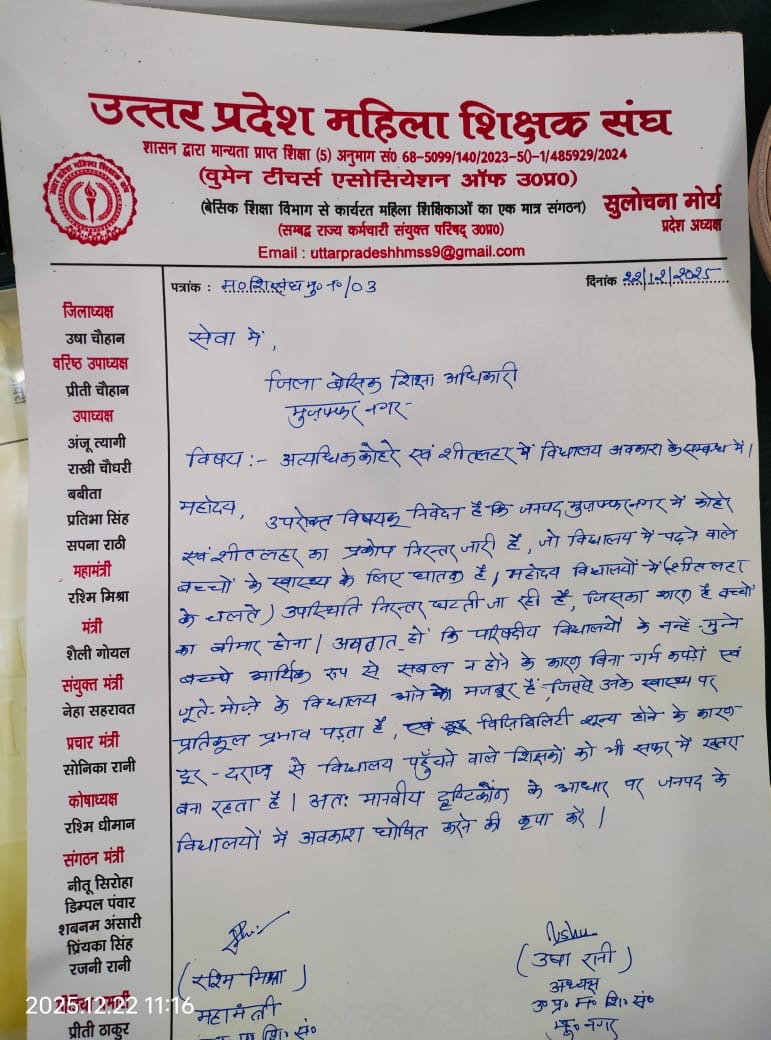 उत्तर प्रदेश महिला शिक्षक संघ
शासन द्वारा मान्यता प्राप्त शिक्षा (5) अनुभाग सं0 68-5099/140/2023-5()-1/485929/2024
(वुमेन टीचर्स एसोसियेशन ऑफ उ0प्र0)
(बेसिक शिक्षा विभाग से कार्यरत महिला शिक्षिकाओं का एक मात्र संगठन)
(सम्बद्ध राज्य कर्मचारी संयुक्त परिषद् उ0प्र0)
Email : uttarpradeshhmss9@gmail.com
सुलोचना मोर्य
प्रदेश अध्यक्ष
पत्रांक : म०शि०संघ मु० न०/03
दिनांक 22/12/2025
जिलाध्यक्ष
उषा चौहान
वरिष्ठ उपाध्यक्ष
प्रीती चौहान
उपाध्यक्ष
अंजू त्यागी
राखी चौधरी
बबीता
प्रतिभा सिंह
सपना राठी
महामंत्री
रश्मि मिश्रा
मंत्री
शैली गोयल
संयुक्त मंत्री
नेहा सहरावत
प्रचार मंत्री
सोनिका रानी
कोषाध्यक्ष
रश्मि धीमान
संगठन मंत्री
नीतू सिरोहा
डिम्पल पंवार
शबनम अंसारी
प्रिंयका सिंह
रजनी रानी
प्रीती ठाकुर
सेवा में,
जिला बेसिक शिक्षा अधिकारी
मुज़फ्फर नगर-
विषय :- अत्यधिक कोहरे एवं शीतलहर में विद्यालय अवकाश के सम्बन्ध में।
महोदय, उपरोक्त विषयक निवेदन है कि जनपद मुज़फ्फरनगर में कोहरे
एवं शीतलहर का प्रकोप निरन्तर जारी है, जो विद्यालय में पढ़ने वाले
बच्चों के स्वास्थ्य के लिए घातक है, महोदय विद्यालयों में (शीतलहर
के चलते) उपस्थिति निरन्तर घटती जा रही है, जिसका कारण है बच्चों
का बीमार होना। अवगत हो कि परिषदीय विद्यालयों के नन्हें-मुन्ने
बच्चे आर्थिक रूप से सबल न होने के कारण बिना गर्म कपड़ों एवं
जूते-मोज़े के विद्यालय आने को मजबूर हैं, जिससे उनके स्वास्थ्य पर
प्रतिकूल प्रभाव पड़ता है, एवं विज़िबिलिटी शून्य होने के कारण
दूर-दराज से विद्यालय पहुँचने वाले शिक्षकों को भी सफर में खतरा
बना रहता है। अतः मानवीय दृष्टिकोण के आधार पर जनपद के
विद्यालयों में अवकाश घोषित करने की कृपा करें।
(रश्मि मिश्रा)
महामंत्री
शि० सं०
Usha
(उषा रानी)
अध्यक्ष
उ० प्र० म० शि० सं०
मु० नगर
2025.12.22 11:16